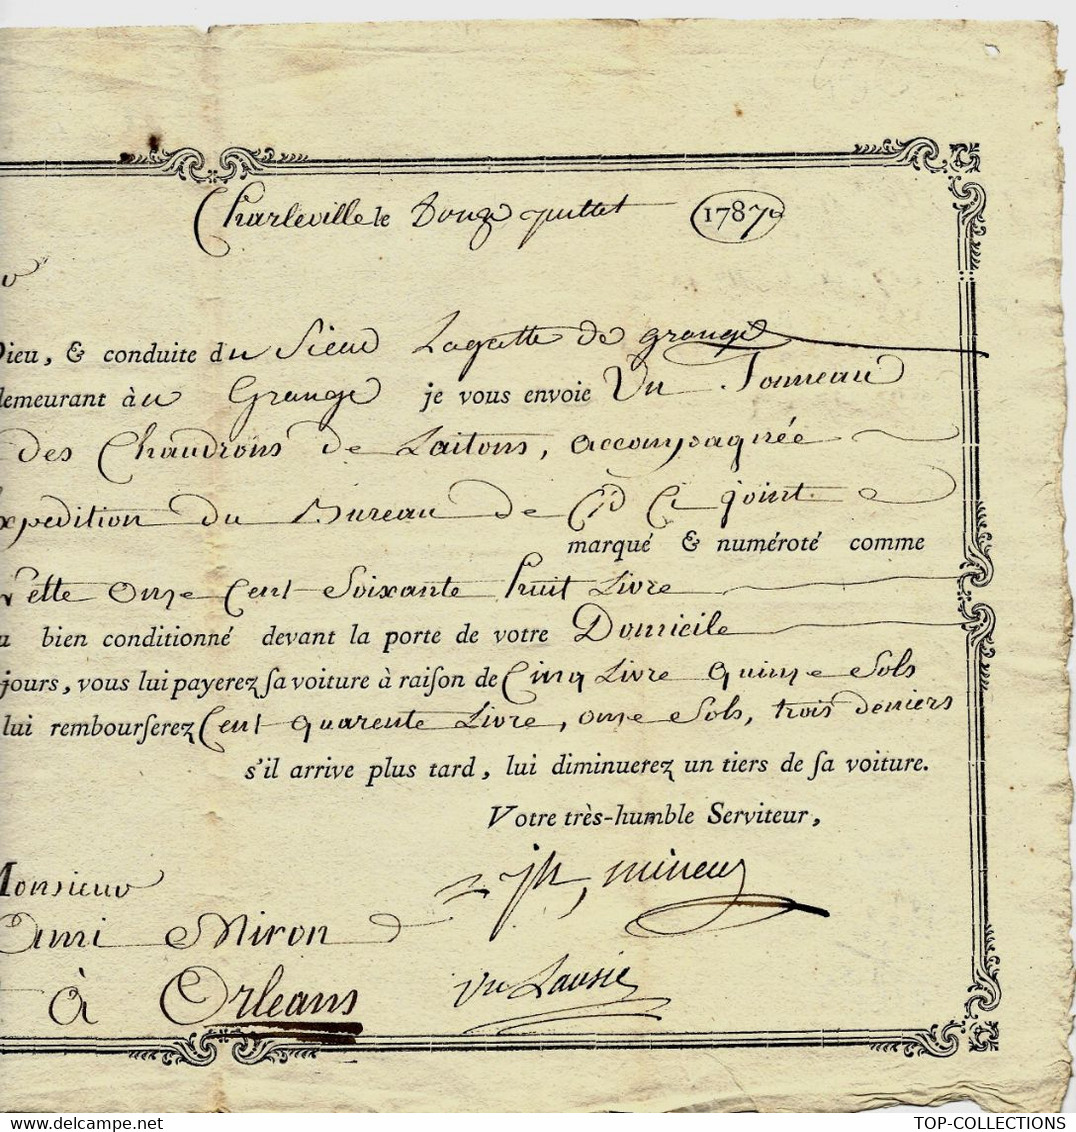 Charleville le Douze juillet 1787
Dieu, & conduite du Sieur Lagette de Grange
demeurant à u Grange je vous envoie Un Tonneau
des Chaudrons de Laitons, accompagnée
xpedition du Bureau de Cid Cy joint
marqué & numéroté comme
Cette onze Cent Soixante huit Livre
bien conditionné devant la porte de votre Domicile
jours, vous lui payerez sa voiture à raison de Cinq Livre quinze Sols
lui rembourserez Cent quarente Livre, onze Sols, trois deniers
s'il arrive plus tard, lui diminuerez un tiers de sa voiture.
Votre très-humble Serviteur,
Monsieur
jh, mineur
Miron
à Orleans
TOP-COLLECTIONS